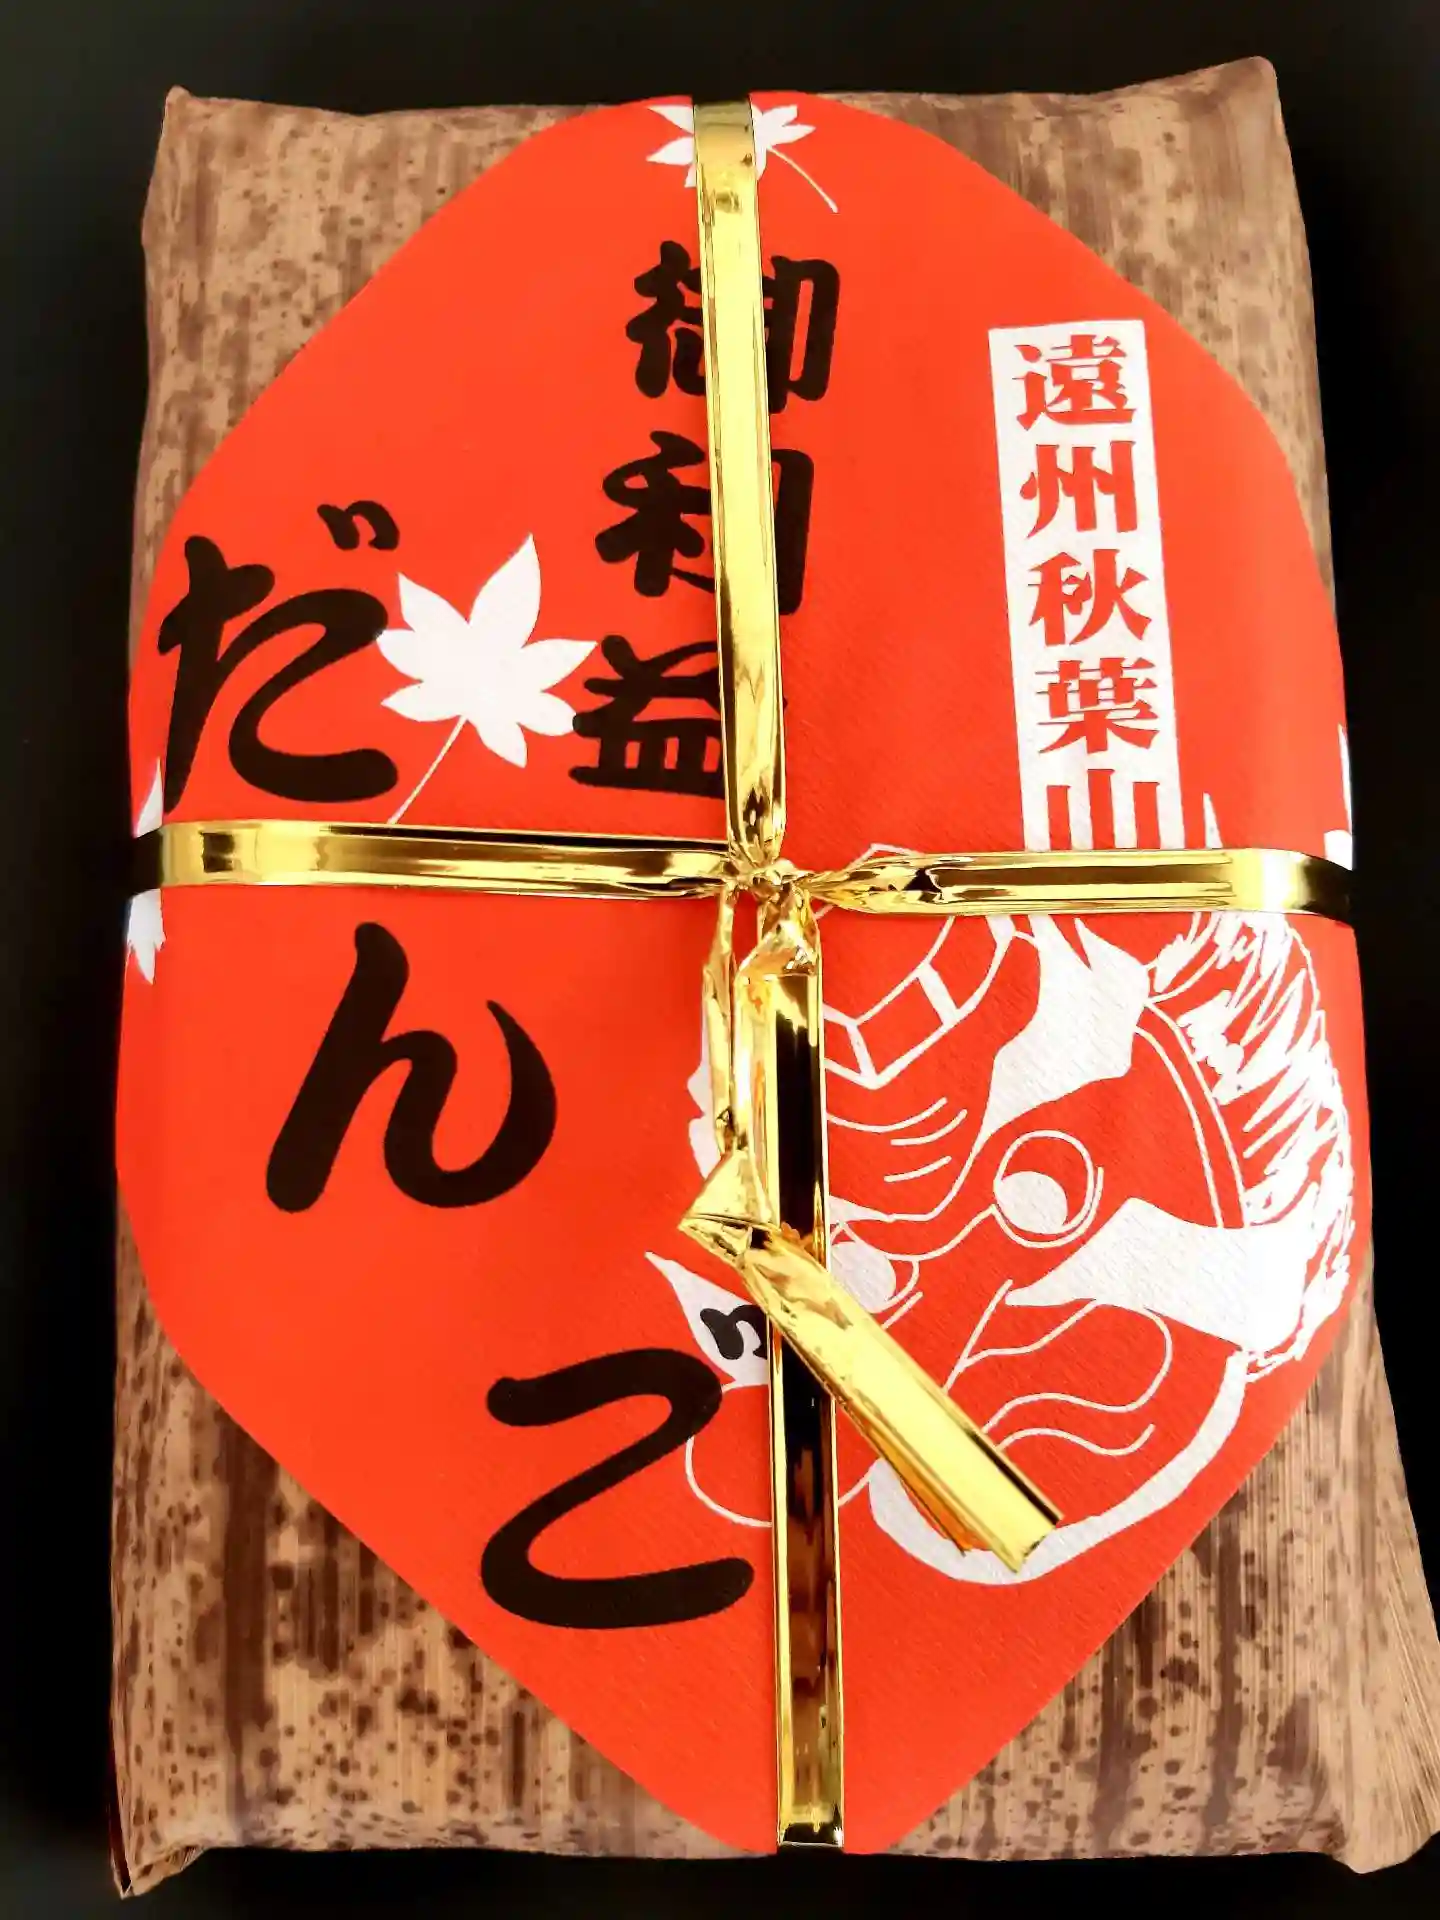 遠州秋葉山
御利益
だんご